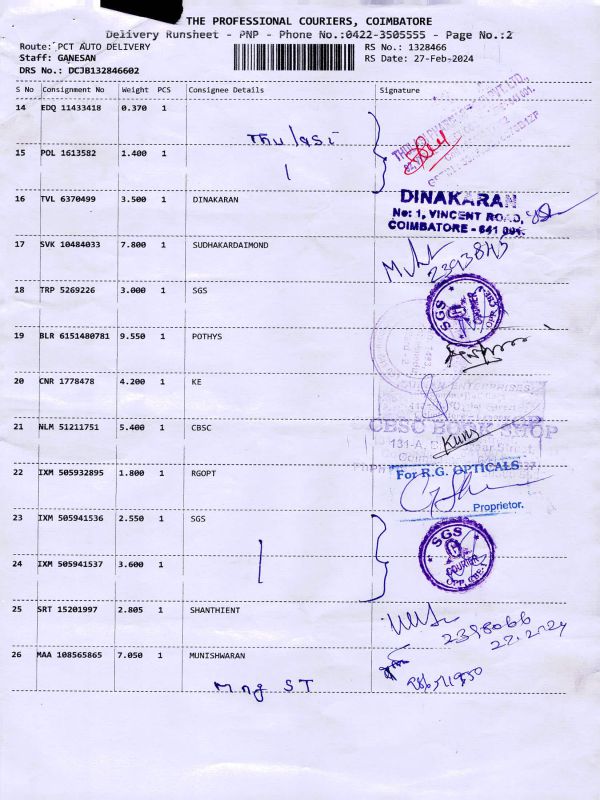 THE PROFESSIONAL COURIERS, COIMBATORE
Delivery Runsheet - PNP - Phone No.:0422-3505555 - Page No.:2
Route: PCT AUTO DELIVERY RS No.: 1328466
Staff: GANESAN RS Date: 27-Feb-2024
DRS No.: DCJB132846602
S No Consignment No Weight PCS Consignee Details Signature
14 EDQ 11433418 0.370 1
Thulasi
15 POL 1613582 1.400 1
16 TVL 6370499 3.500 1 DINAKARAN
DINAKARAN
No: 1, VINCENT ROAD,
COIMBATORE - 641 001.
17 SVK 10484033 7.800 1 SUDHAKARDAIMOND
2393845
18 TRP 5269226 3.000 1 SGS
SGS
COURIER
19 BLR 6151480781 9.550 1 POTHYS
20 CNR 1778478 4.200 1 KE
ENTERPRISES
21 NLM 51211751 5.400 1 CBSC
CBSC BOOK SHOP
131-A,
22 IXM 505932895 1.800 1 RGOPT
For R.G. OPTICALS
Proprietor.
23 IXM 505941536 2.550 1 SGS
SGS
COURIER
24 IXM 505941537 3.600 1
25 SRT 15201997 2.805 1 SHANTHIENT
2398066
26 MAA 108565865 7.050 1 MUNISHWARAN
Mng ST